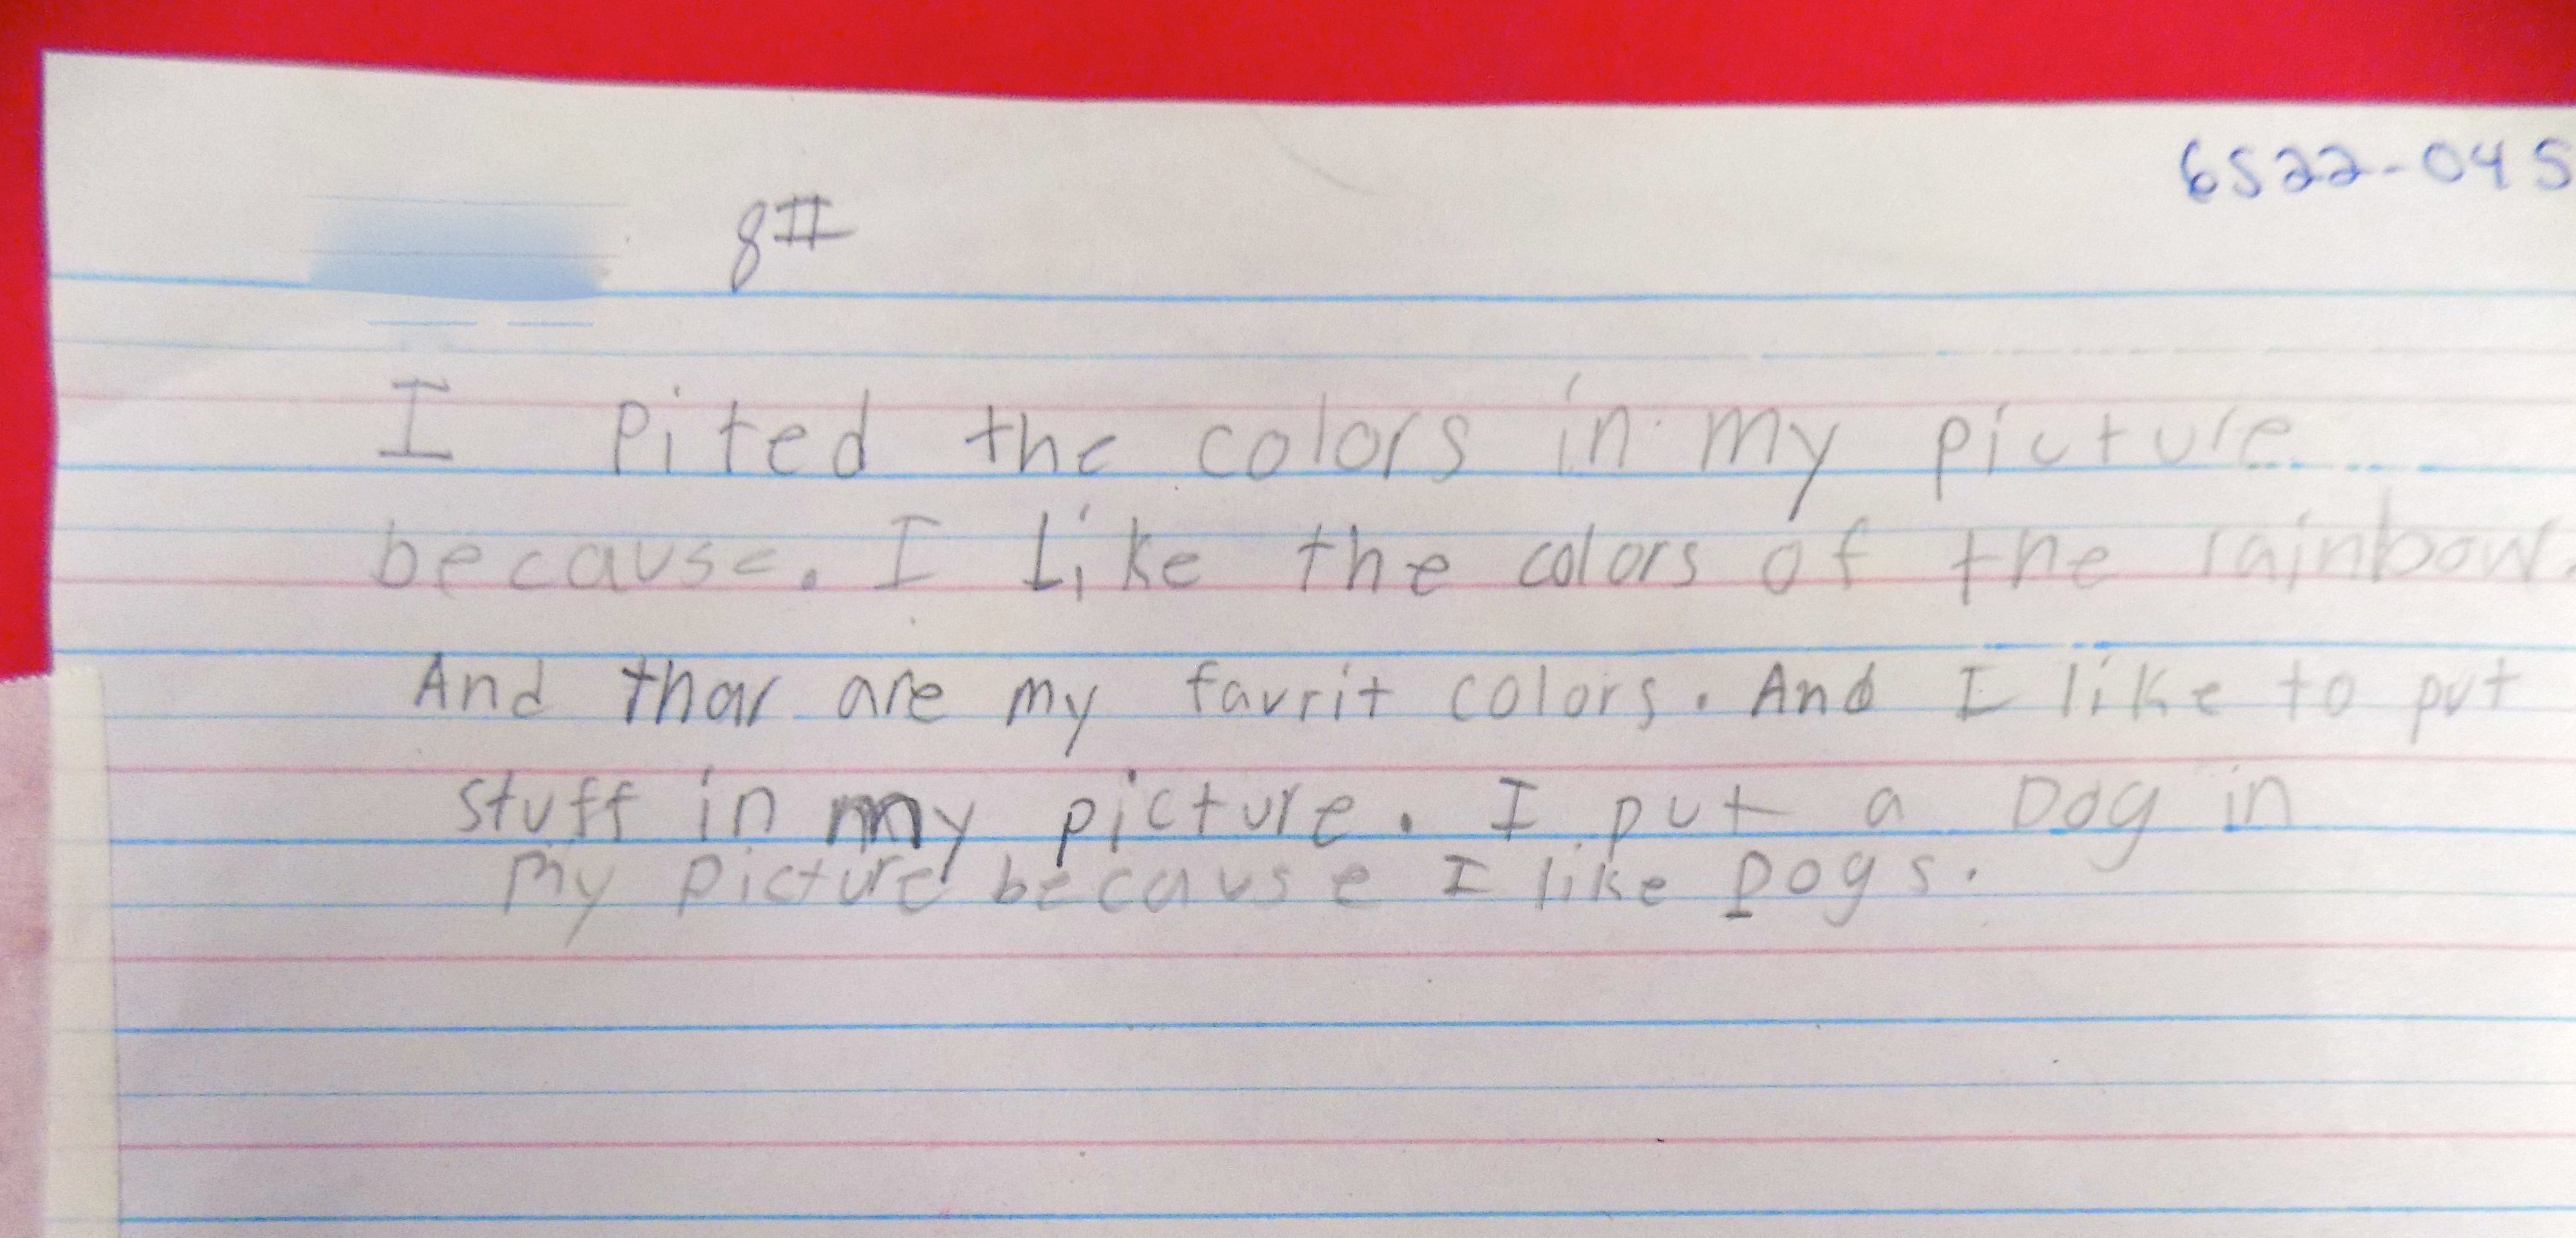 6522-045
8#
I pited the colors in my picture
because. I like the colors of the rainbow.
And thar are my favrit colors. And I like to put
stuff in my picture. I put a Dog in
my picture because I like Dogs.